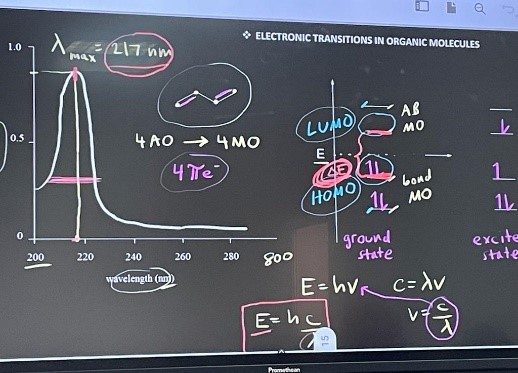 ❖ ELECTRONIC TRANSITIONS IN ORGANIC MOLECULES
1.0
λmax = 217 nm
0.5
4AO → 4MO
4πe⁻
0
200 220 240 260 280 800
wavelength (nm)
LUMO
AB
MO
E
ΔE
HOMO
bond
MO
ground
state
excite
state
E = hν
C = λν
ν = c/λ
E = h c/λ
15
Promethean